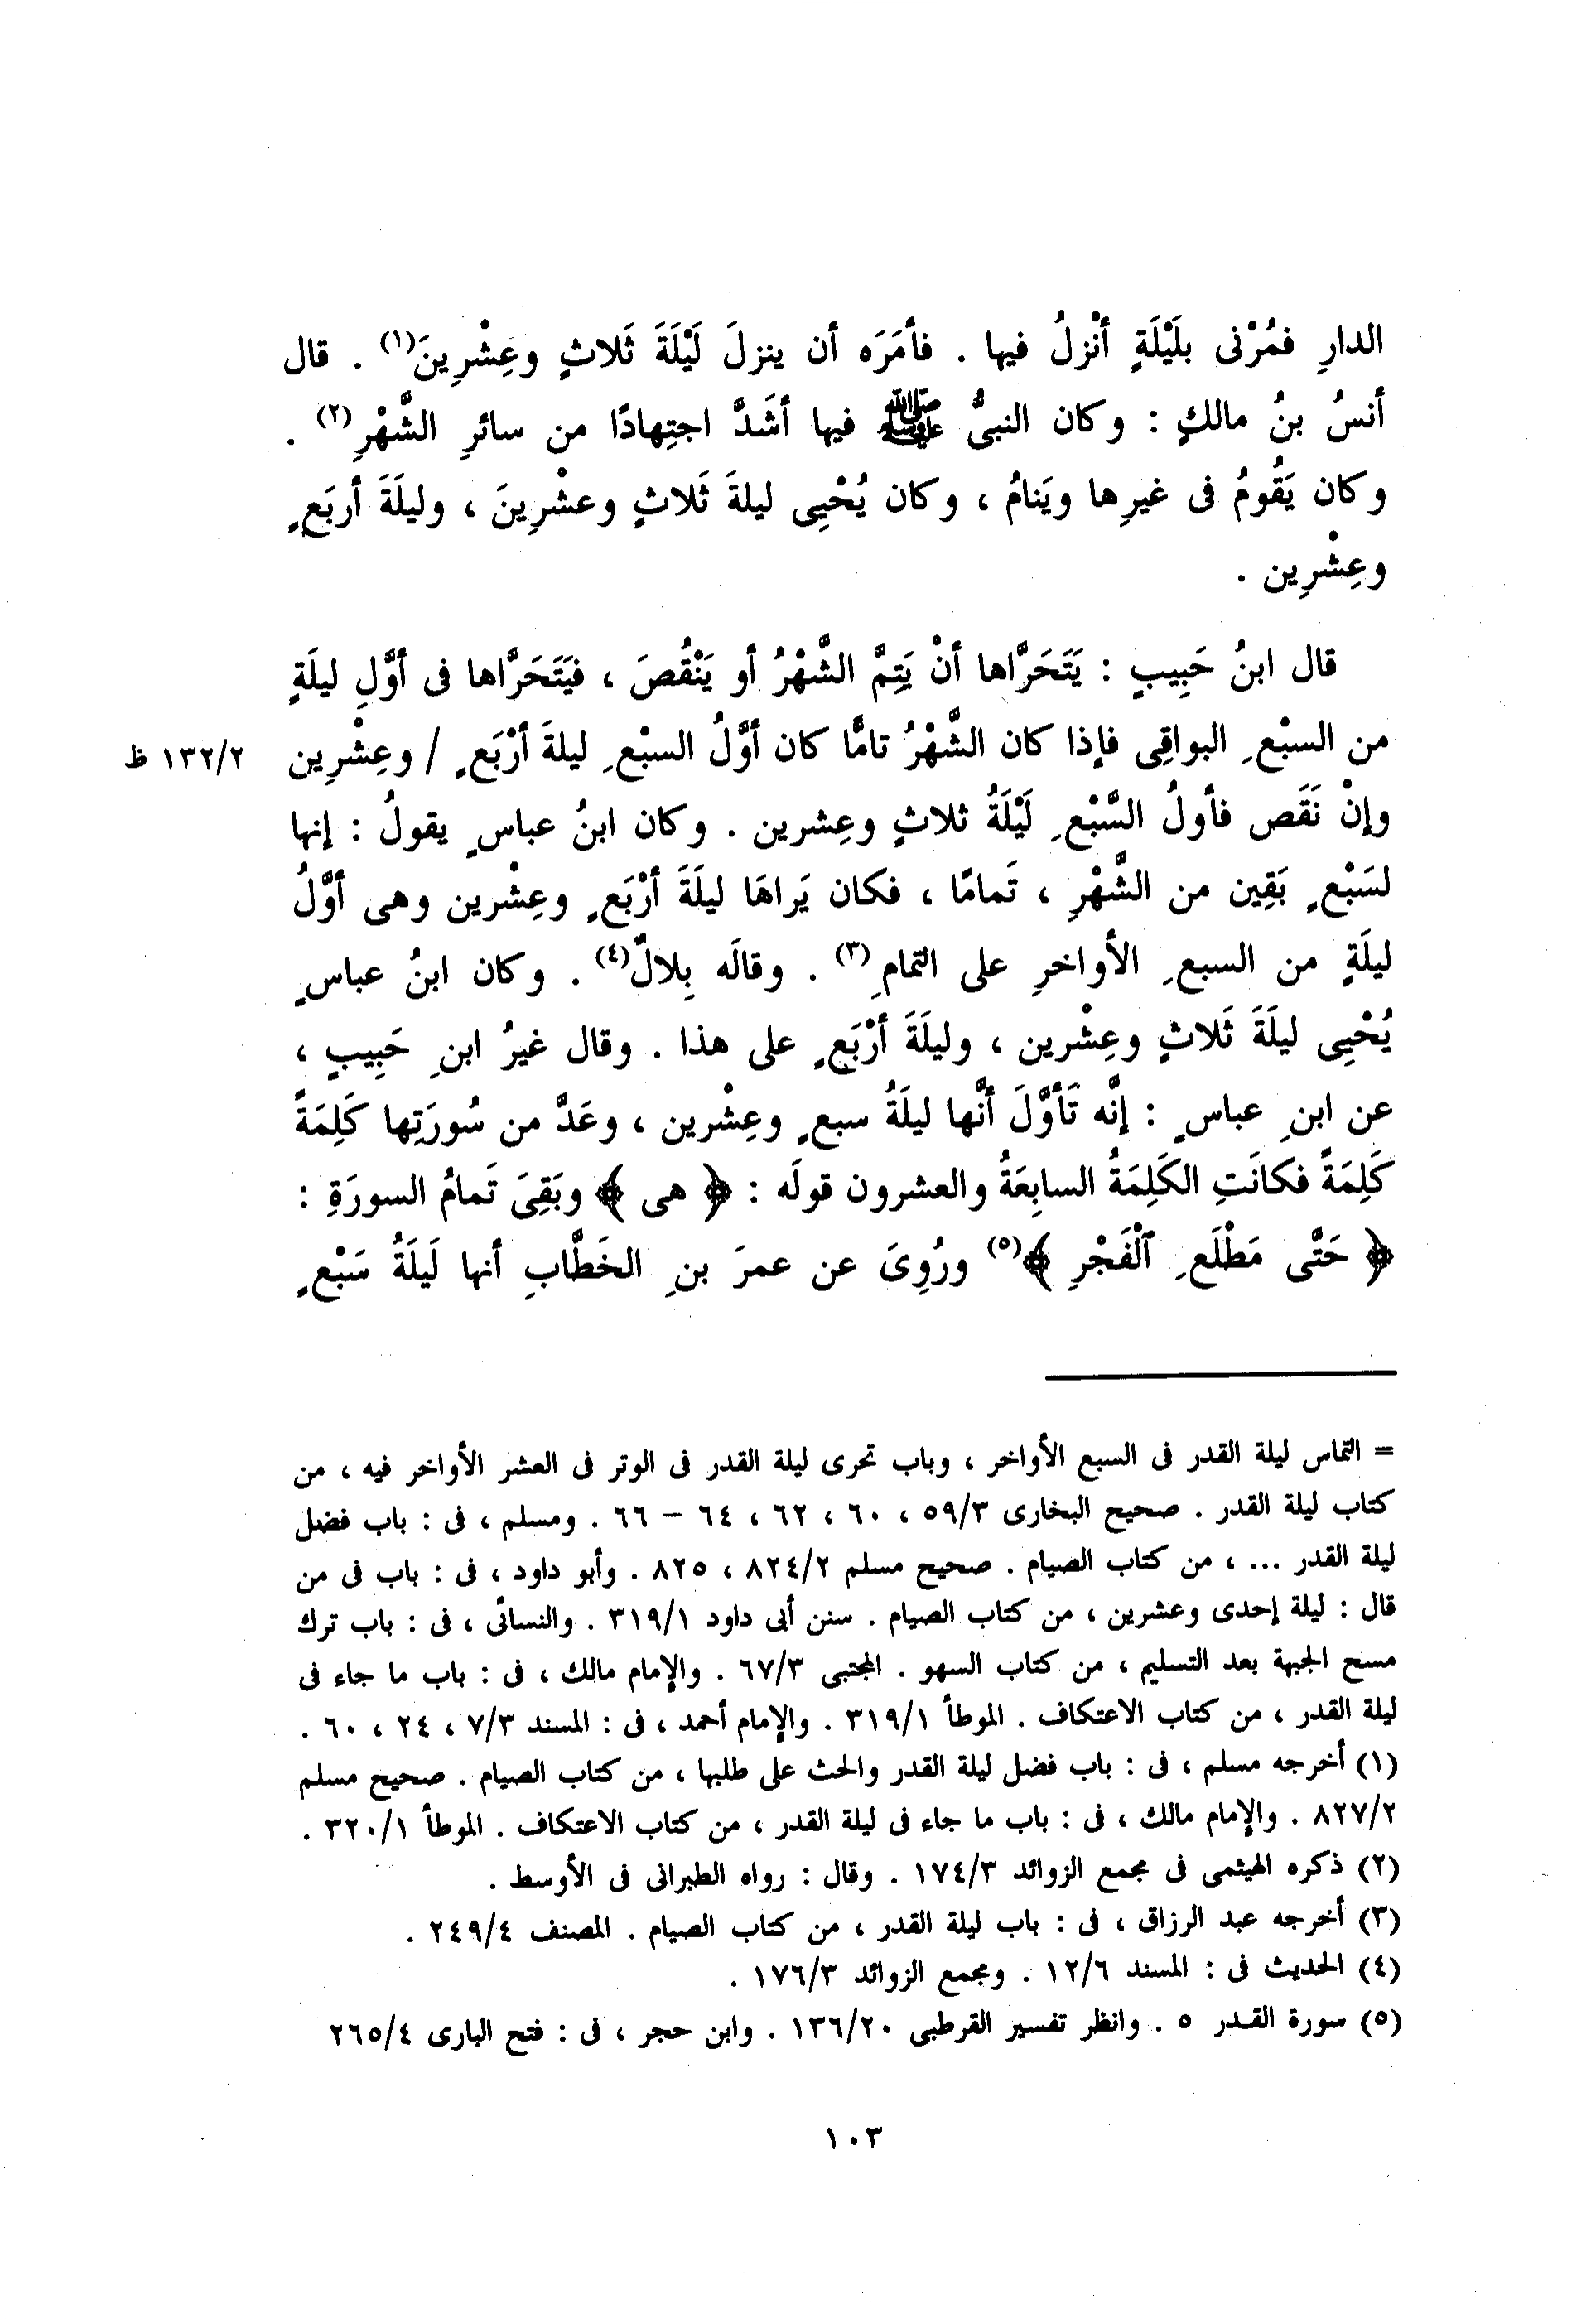 الدارِ فمُرْنى بلَيْلَةٍ أنْزلُ فيها . فأمَرَه أن ينزلَ لَيْلَةَ ثَلاثٍ وعِشْرِينَ(١) . قال
أنسُ بنُ مالكٍ : وكان النبىُّ ﷺ فيها أشَدَّ اجتِهادًا من سائرِ الشَّهْرِ(٢) .
وكان يَقُومُ فى غيرِها ويَنامُ ، وكان يُحْيِى ليلةَ ثَلاثٍ وعشْرِينَ ، وليلَةَ أربَعٍ
وعِشْرِين .
قال ابنُ حَبِيبٍ : يَتَحَرَّاها أنْ يَتِمَّ الشَّهْرُ أو يَنْقُصَ ، فيَتَحَرَّاها فى أوَّلِ ليلَةٍ
من السبْعِ البواقِى فإذا كان الشَّهْرُ تامًّا كان أوَّلُ السبْعِ ليلةَ أرْبَعٍ / وعِشْرِين ١٣٢/٢ ظ
وإنْ نَقَص فأولُ السَّبْعِ لَيْلَةُ ثلاثٍ وعِشرين . وكان ابنُ عباسٍ يقولُ : إنها
لسَبْعٍ بَقِين من الشَّهْرِ ، تَمامًا ، فكان يَراهَا ليلَةَ أرْبَعٍ وعِشْرين وهى أوَّلُ
ليلَةٍ من السبعِ الأواخرِ على التمامِ(٣) . وقالَه بِلالٌ(٤) . وكان ابنُ عباسٍ
يُحْيِى ليلَةَ ثَلاثٍ وعِشْرين ، وليلَةَ أرْبَعٍ على هذا . وقال غيرُ ابنِ حَبِيبٍ ،
عن ابنِ عباسٍ : إنَّه تَأوَّلَ أنَّها ليلَةُ سبعٍ وعِشْرين ، وعَدَّ من سُورَتِها كَلِمَةً
كَلِمَةً فكانَتِ الكَلِمَةُ السابِعَةُ والعشرون قولَه : ﴿ هى ﴾ وبَقِىَ تَمامُ السورَةِ :
﴿ حَتَّى مَطْلَعِ ٱلْفَجْرِ ﴾(٥) ورُوِىَ عن عمرَ بنِ الخَطَّابِ أنها لَيلَةُ سَبْعٍ
= التماس ليلة القدر فى السبع الأواخر ، وباب تحرى ليلة القدر فى الوتر فى العشر الأواخر فيه ، من
كتاب ليلة القدر . صحيح البخارى ٥٩/٣ ، ٦٠ ، ٦٢ ، ٦٤ – ٦٦ . ومسلم ، فى : باب فضل
ليلة القدر ... ، من كتاب الصيام . صحيح مسلم ٨٢٤/٢ ، ٨٢٥ . وأبو داود ، فى : باب فى من
قال : ليلة إحدى وعشرين ، من كتاب الصيام . سنن أبى داود ٣١٩/١ . والنسائى ، فى : باب ترك
مسح الجبهة بعد التسليم ، من كتاب السهو . المجتبى ٦٧/٣ . والإمام مالك ، فى : باب ما جاء فى
ليلة القدر ، من كتاب الاعتكاف . الموطأ ٣١٩/١ . والإمام أحمد ، فى : المسند ٧/٣ ، ٢٤ ، ٦٠ .
(١) أخرجه مسلم ، فى : باب فضل ليلة القدر والحث على طلبها ، من كتاب الصيام . صحيح مسلم
٨٢٧/٢ . والإمام مالك ، فى : باب ما جاء فى ليلة القدر ، من كتاب الاعتكاف . الموطأ ٣٢٠/١ .
(٢) ذكره الهيثمى فى مجمع الزوائد ١٧٤/٣ . وقال : رواه الطبرانى فى الأوسط .
(٣) أخرجه عبد الرزاق ، فى : باب ليلة القدر ، من كتاب الصيام . المصنف ٢٤٩/٤ .
(٤) الحديث فى : المسند ١٢/٦ . ومجمع الزوائد ١٧٦/٣ .
(٥) سورة القدر ٥ . وانظر تفسير القرطبى ١٣٦/٢٠ . وابن حجر ، فى : فتح البارى ٢٦٥/٤
١٠٣